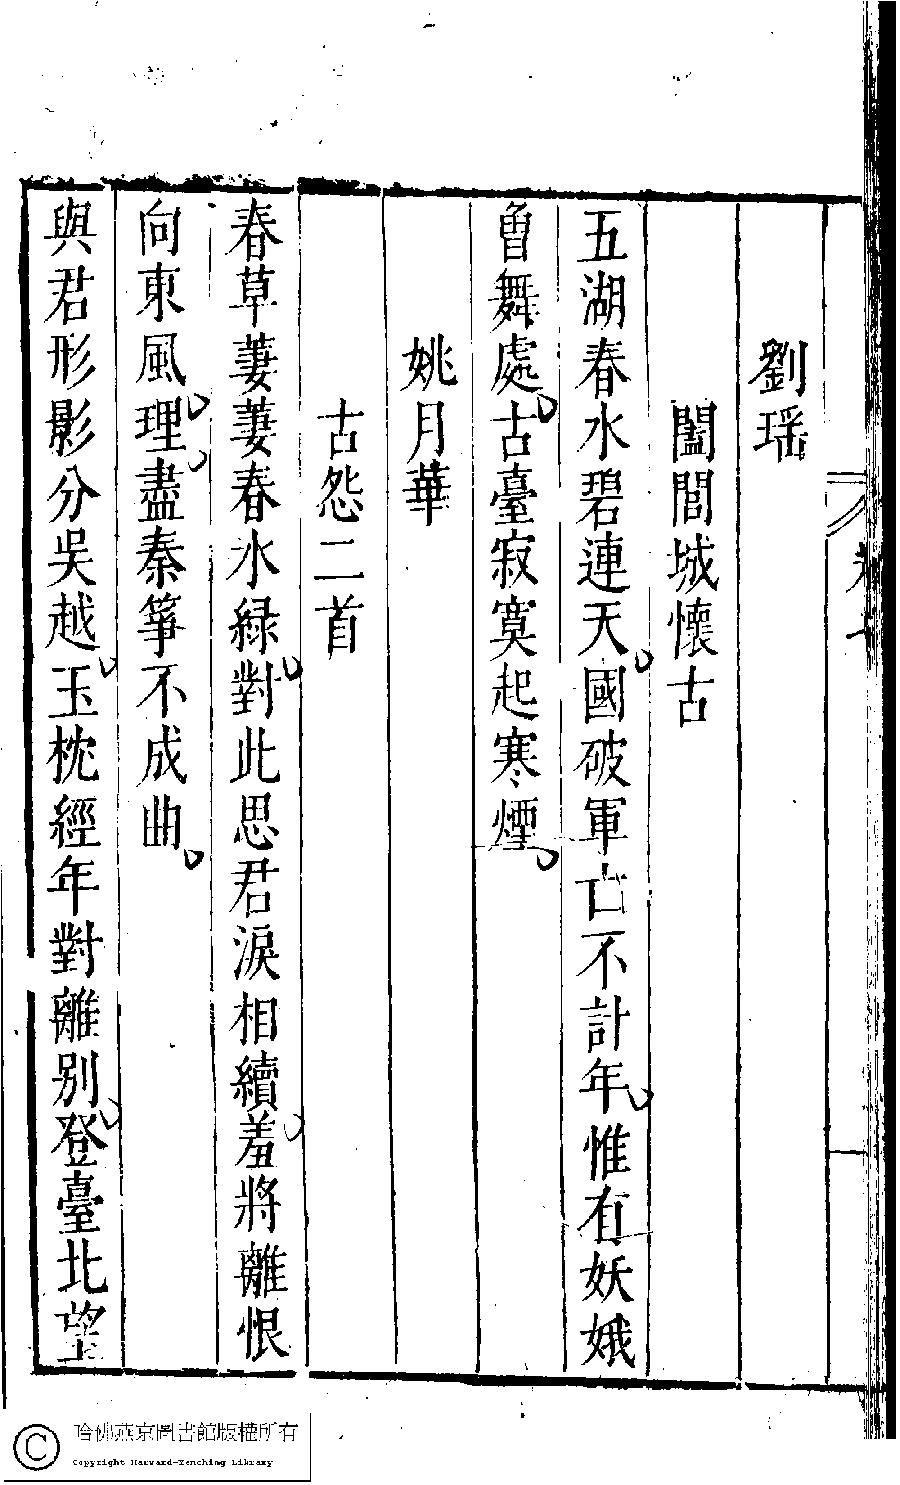 劉瑶
闔閭城懷古
五湖春水碧連天國破軍亡不計年惟有妖娥
曾舞處古臺寂寞起寒煙
姚月華
古怨二首
春草萋萋春水緑對此思君淚相續羞將離恨
向東風理盡秦箏不成曲
與君形影分吳越玉枕經年對離別登臺北望
哈佛燕京圖書館版權所有
Copyright Harvard-Yenching Library